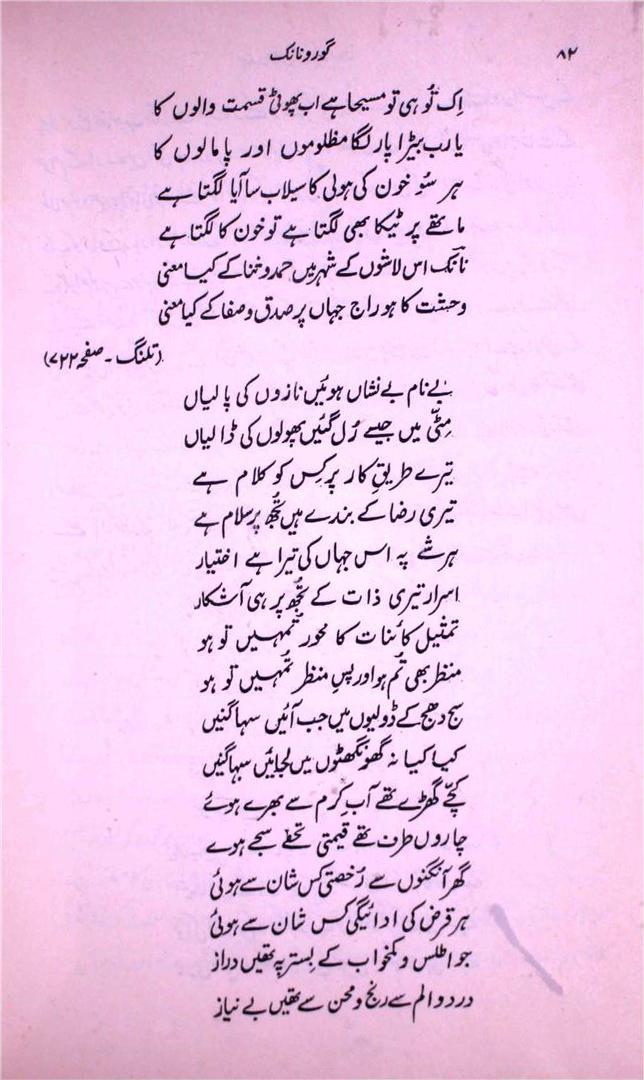 ۸۲ گورونانک
اِک تُو ہی تو مسیحا ہے اب پھوٹی قسمت والوں کا
یا رب بیڑا پار لگا مظلوموں اور پامالوں کا
ہر سُو خون کی ہولی کا سیلاب سا آیا لگتا ہے
ماتھے پر ٹیکا بھی لگتا ہے تو خون کا لگتا ہے
نانک اس لاشوں کے شہر میں حمد و ثنا کے کیا معنی
وحشت کا ہو راج جہاں پر صدق و صفا کے کیا معنی
(تلنگ۔ صفحہ ۷۲۲)
بے نام بے نشاں ہوئیں نازوں کی پالیاں
مِٹّی میں جیسے رُل گئیں پھولوں کی ڈالیاں
تیرے طریقِ کار پر کِس کو کلام ہے
تیری رضا کے بندے ہیں تُجھ پر سلام ہے
ہر شے پہ اس جہاں کی تیرا ہے اختیار
اسرار تیری ذات کے تُجھ پر ہی آشکار
تمثیل کائنات کا محور تُمہیں تو ہو
منظر بھی تُم ہو اور پسِ منظر تُمہیں تو ہو
سج دھج کے ڈولیوں میں جب آئیں سہاگنیں
کیا کیا نہ گھونگھٹوں میں لجائیں سہاگنیں
کچّے گھڑے تھے آبِ کرم سے بھرے ہوئے
چاروں طرف تھے قیمتی تحفے سجے ہوے
گھر آنگنوں سے رُخصتی کس شان سے ہوئی
ہر قرض کی ادائیگی کس شان سے ہوئی
جو اطلس و کمخواب کے بِستر پہ تھیں دراز
درد و الم سے رنج و محن سے تھیں بے نیاز